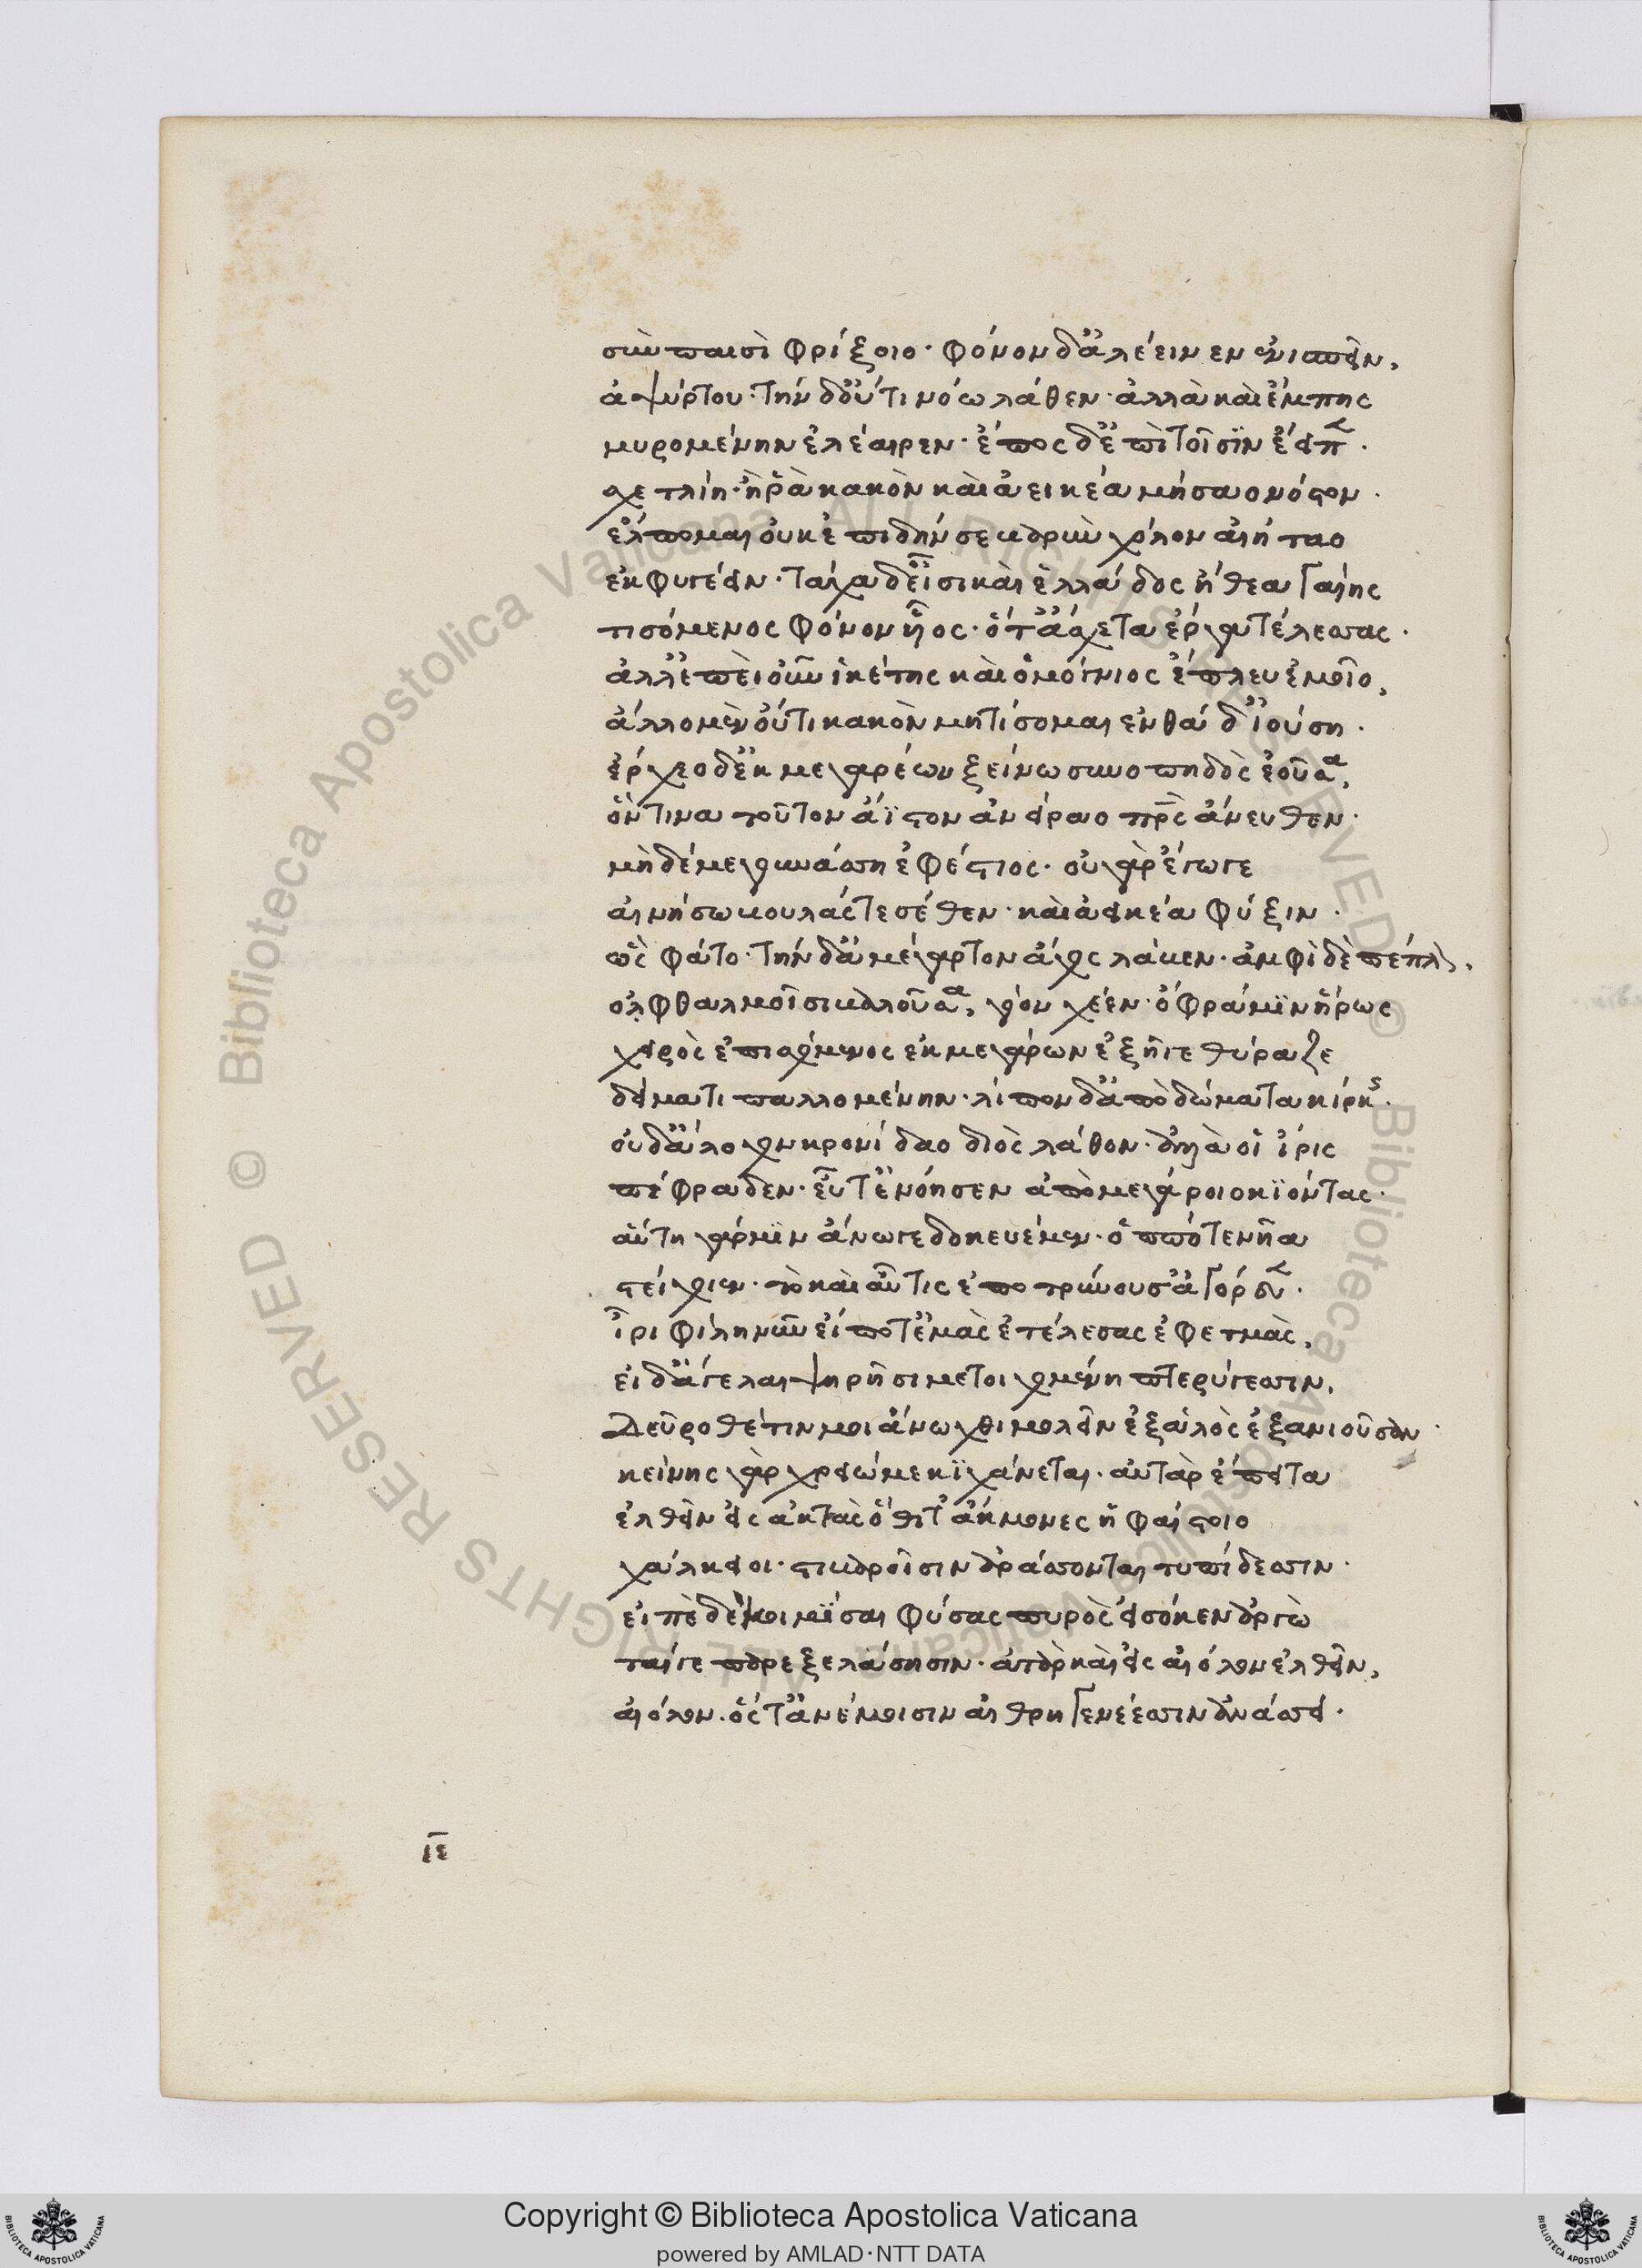 σὺν παισὶ φρίξοιο· φόνον δ' ἀλέεινεν ἐνισπεῖν,
ἀψύρτου· τὴν δ' οὔτι νόω λάθεν· ἀλλὰ καὶ ἔμπης
μυρομένην ἐλέαιρεν· ἔπος δ' ἐπὶ τοῖσϊν ἔειπε.
σχετλίη· ἦ ῥὰ κακὸν καὶ ἀεικέα μήσαο νόστον.
ἔλπομαι οὐκ ἐπιδήν σε βαρὺν χόλον αἰήταο
ἐκφυγέειν· τάχα δ' εἶσι καὶ ἑλλάδος ἤθεα γαίης
τισόμενος φόνον ἧος· ὅτ' ἄσχετα ἔργ' ἐτέλεσσας.
ἀλλ' ἐπεὶ οὖν ἱκέτης καὶ ὁμόγνιος ἔπλευ ἐμοῖο,
ἄλλο μὲν οὔτι κακὸν μητίσομαι ἐνθάδ' ἰούση.
ἔρχεο δ' ἐκ μεγάρων ξείνω συνοπηδὸς ἐοῦσα,
ὅντινα τοῦτον ἄϊστον ἀνείραο πρὸς ἄνευθεν·
μηδέ με γουνάσση ἐφέστιος· οὐ γὰρ ἔγωγε
αἰνήσω βουλάς τε σέθεν· καὶ ἀεικέα φύξιν.
ὣς φάτο· τὴν δ' ἀμέγαρτον ἄχος λάβεν· ἀμφὶ δὲ πέπλον,
ὀφθαλμοῖσι βαλοῦσα, γόον χέεν· ὄφρα μϊν ἥρως
χειρὸς ἐπισχόμενος ἐκ μεγάρων ἐξῆγε θύραζε
δείματι παλλομένην· λίπον δ' ἀπὸ δώματα κίρκης.
οὐδ' ἄλοχον κρονίδαο διὸς λάθον· ἀλλὰ οἱ ἶρις
πέφραδεν· εὖτ' ἐνόησεν ἀπὸ μεγάροιο κϊόντας.
αὕτη γάρ μϊν ἄνωγε δοκευέμεν· ὁππότε νῆα
στείχοιεν· τὸ καὶ αὖτις ἐποτρύνουσ' ἀγόρευεν.
ἶρι φίλη νῦν εἴ ποτ' ἐμὰς ἐτέλεσας ἐφετμὰς,
εἰ δ' ἄγε λαιψηρῆσι μετοιχομένη πτερύγεσσιν,
Δεῦρο θέτιν μοι ἄνωχθι μολεῖν ἐξ ἁλὸς ἐξανιοῦσαν
κείνης γὰρ χρειώ με κϊχάνεται. αὐτὰρ ἔπειτα
ἐλθεῖν εἰς ἀκτὰς ὅθι τ' ἄκμονες ἡφαίστοιο
χάλκειοι· στιβαροῖσιν ἀράσσονται τυπίδεσσιν.
εἰπὲ δέ οἱ κοιμῖσαι φύσας πυρὸς εἰσόκεν ἀργὼ
τάς γε παρεξελάσησιν. ἀτὰρ καὶ εἰς αἴολον ἐλθεῖν,
αἴολον. ὅς τ' ἀνέμοισιν αἰθρηγενέεσσιν ἀνάσσει.
ιε
Copyright © Biblioteca Apostolica Vaticana
powered by AMLAD·NTT DATA